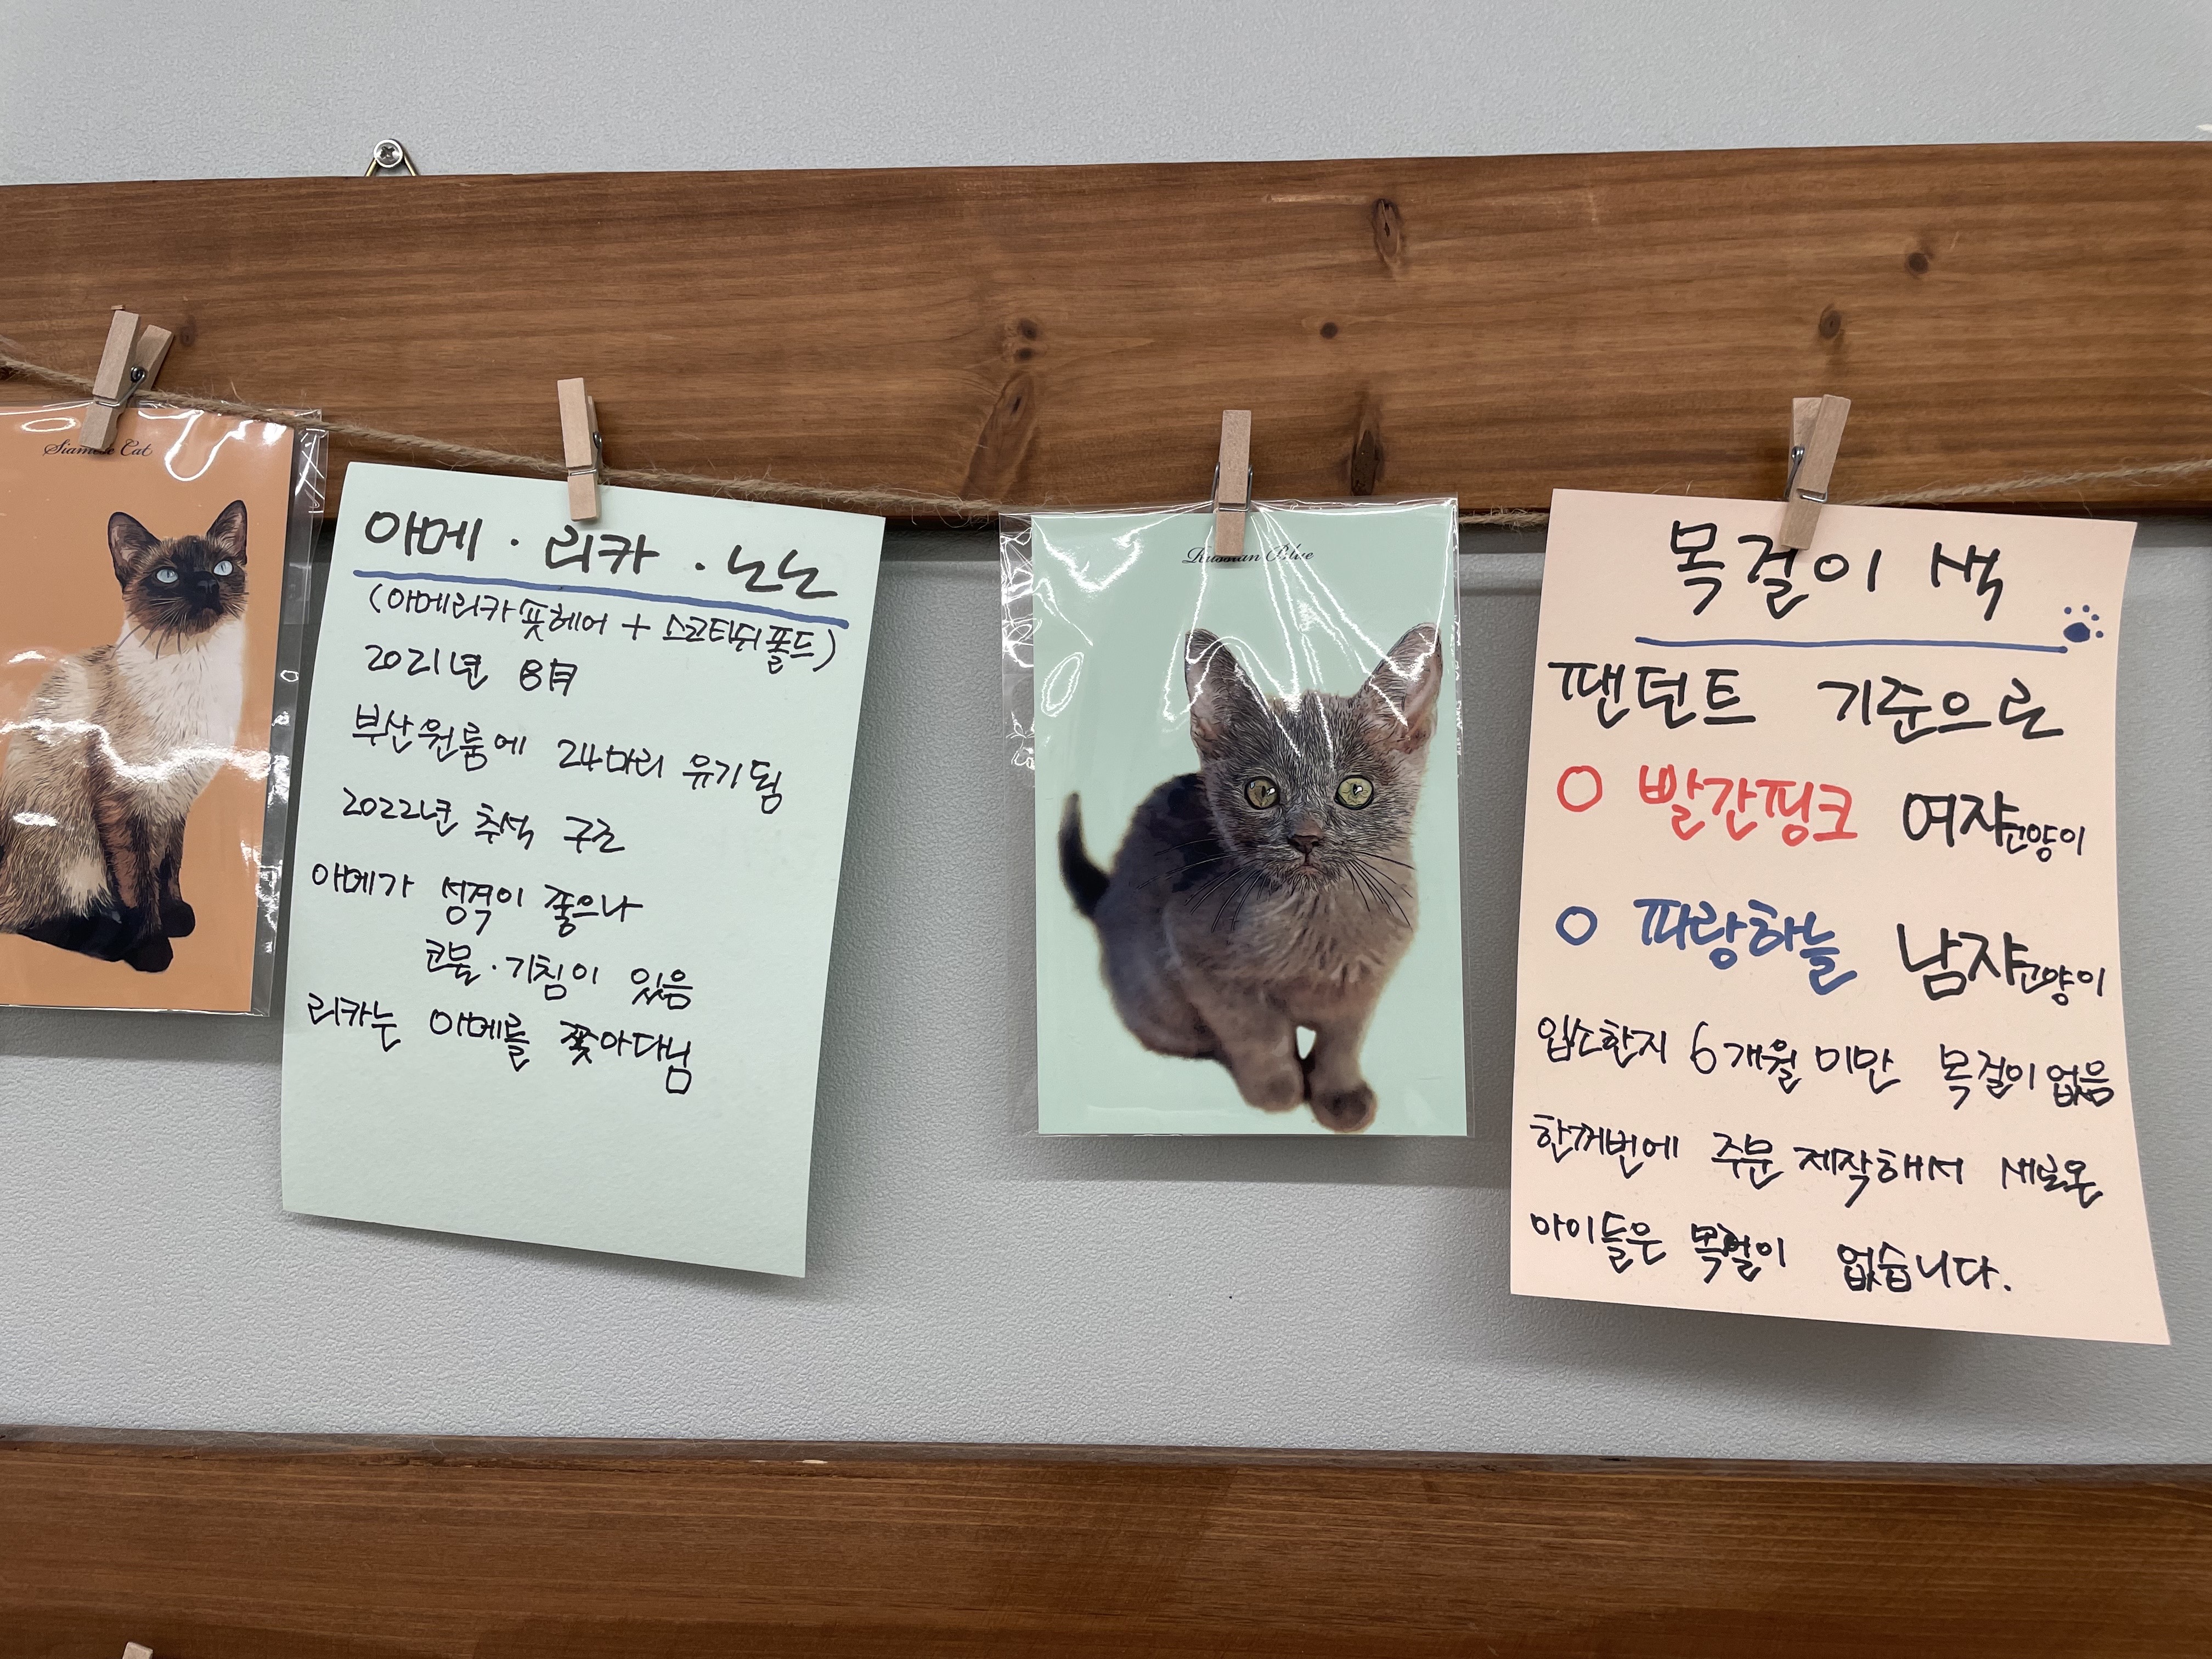 Siamese Cat
아메 · 리카 · 난난
(아메리카 숏헤어 + 스코티쉬폴드)
2021년 8月
부산 원룸에 24마리 유기됨
2022년 추석 구조
아메가 성격이 좋으나
콧물 · 기침이 있음
리카는 아메를 쫓아다님
Russian Blue
목걸이 색
팬던트 기준으로
○ 빨간핑크 여자고양이
○ 파랑하늘 남자고양이
입소한지 6개월 미만 목걸이 없음
한꺼번에 주문 제작해서 새로온
아이들은 목걸이 없습니다.